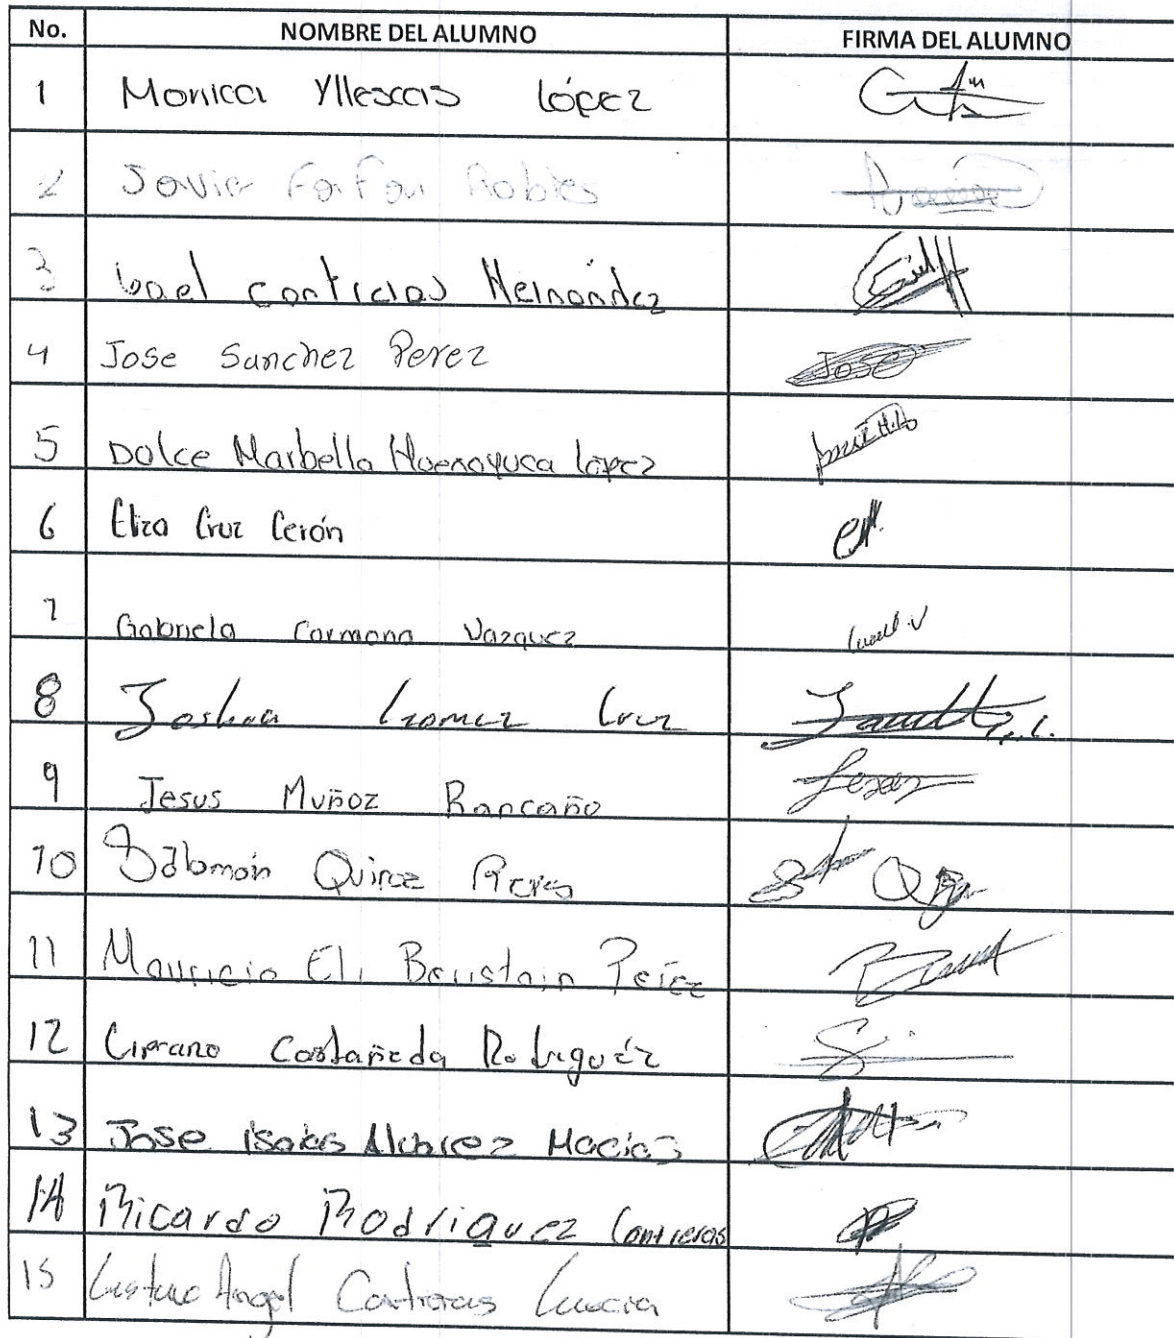 No. NOMBRE DEL ALUMNO FIRMA DEL ALUMNO
1 Monica Yllescas López
2 Javier Farfan Robles
3 Contreras Hernández
4 Jose Sanchez Perez Jose
5 Dolce Marbella López
6 Eliza Cruz Cerón
7 Gabriela Carmona Vazquez
8 Joshua Gomez Cruz
9 Jesus Muñoz Rancaño
10 Salomón Quiroz Reyes
11 Mauricio Eli Beristain Perez
12 Cipriano Castañeda Rodriguéz
13 Jose isaias Alvarez Macias
14 Ricardo Rodriguez Contreras
15 Gustavo Angel Contreras